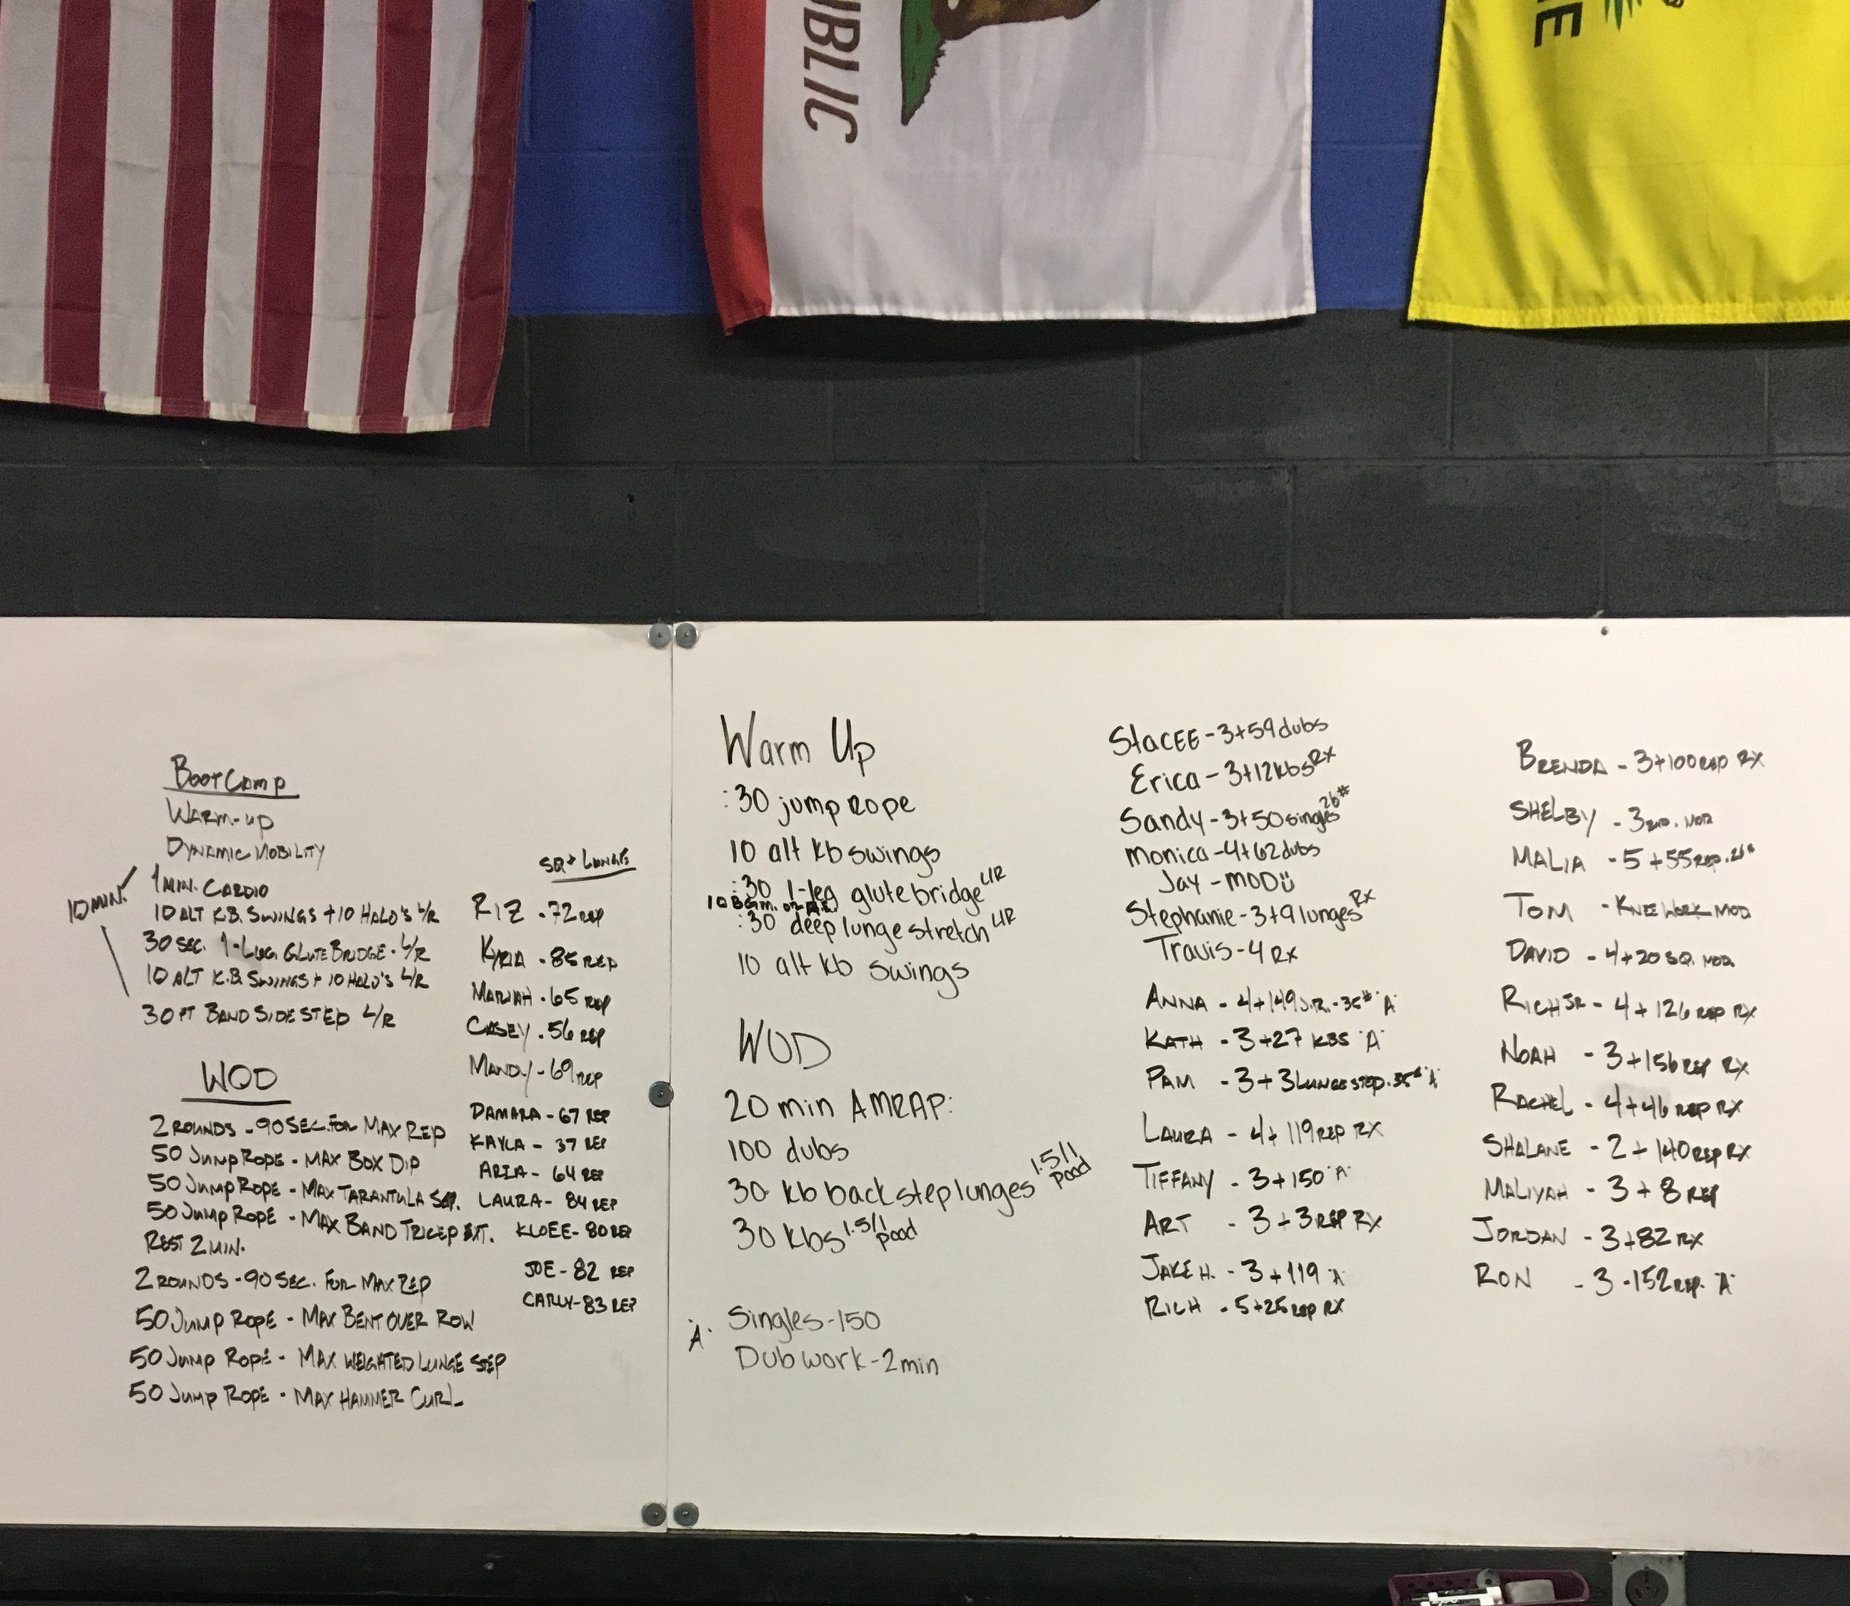 UBLIC
NE
BOOTCAMP
WARM-UP
DYNAMIC MOBILITY
10 MIN.
1 MIN. CARDIO
10 ALT K.B. SWINGS + 10 HALO'S L/R
30 SEC. 1-LEG. GLUTE BRIDGE. L/R
10 ALT K.B. SWINGS + 10 HALO'S L/R
30 FT BAND SIDE STEP L/R
WOD
2 ROUNDS - 90 SEC. FOR MAX REP
50 JUMP ROPE - MAX BOX DIP
50 JUMP ROPE - MAX TARANTULA
50 JUMP ROPE - MAX BAND TRICEP EXT.
REST 2 MIN.
2 ROUNDS - 90 SEC. FOR MAX REP
50 JUMP ROPE - MAX BENT OVER ROW
50 JUMP ROPE - MAX WEIGHTED LUNGE STEP
50 JUMP ROPE - MAX HAMMER CURL
SQ + LUNGES
RIZ - 72 REP
KYRIA - 85 REP
MARIAH - 65 REP
CASEY - 56 REP
MANDY - 69 REP
DAMARA - 67 REP
KAYLA - 37 REP
ARIA - 64 REP
LAURA - 84 REP
KLOEE - 80 REP
JOE - 82 REP
CARLY - 83 REP
Warm Up
:30 jump rope
10 alt kb swings
:30 1-leg glute bridge L/R
:30 deep lunge stretch L/R
10 alt kb swings
WOD
20 min AMRAP:
100 dubs
30 kb back step lunges 1.5/1 pood
30 kbs 1.5/1 pood
"A" Singles-150
Dub work-2min
Stacee - 3+59 dubs
Erica - 3+12 kbs RX
Sandy - 3+50 singles 26#
Monica - 4+62 dubs
Jay - MOD
Stephanie - 3+9 lunges RX
Travis - 4 Rx
ANNA - 4+149 J.R. - 35# "A"
KATH - 3+27 KBS "A"
PAM - 3+3 LUNGE STEP. 35# "A"
LAURA - 4+119 REP RX
TIFFANY - 3+150 "A"
ART - 3+3 REP RX
JAKE H. - 3+119 "A"
RICH - 5+25 REP RX
BRENDA - 3+100 REP RX
SHELBY - 3 MOD
MALIA - 5+55 REP. 26#
TOM - KNEE WORK MOD
DAVID - 4+20 SQ. MOD
RICH JR - 4+126 REP RX
NOAH - 3+156 REP RX
RACHEL - 4+46 REP RX
SHALANE - 2+140 REP RX
MALIYAH - 3+8 REP
JORDAN - 3+82 RX
RON - 3-152 REP. "A"